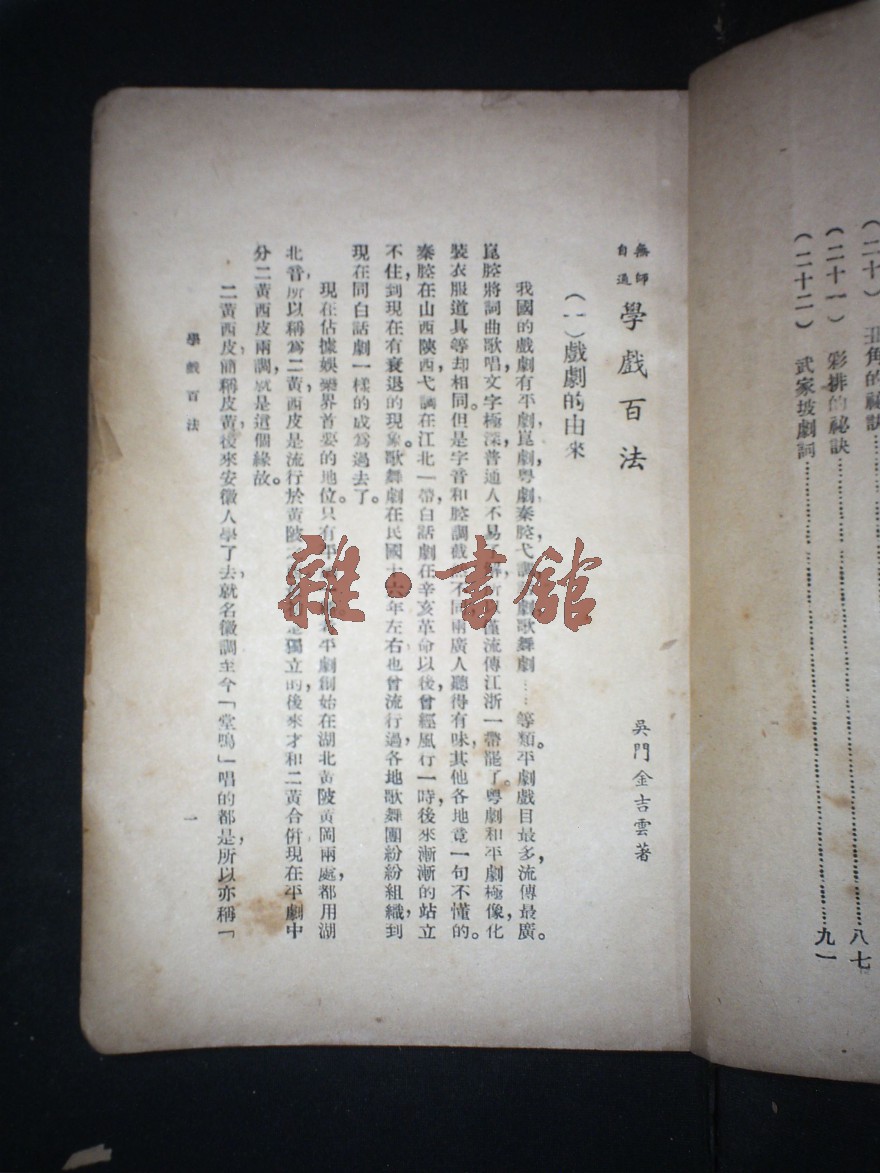 (二十) 丑角的秘訣
(二十一) 彩排的秘訣……八七
(二十二) 武家坡劇詞……九一
無師自通 學戲百法
吳門金吉雲著
(一)戲劇的由來
我國的戲劇有平劇,崑劇,粵劇,秦腔,弋調,劇,歌舞劇……等類。平劇戲目最多,流傳最廣。
崑腔將詞曲歌唱,文字極深,普通人不易,僅流傳江浙一帶罷了。粵劇和平劇極像,化
裝衣服道具等却相同。但是字音和腔調截不同,兩廣人聽得有味,其他各地竟一句不懂的。
秦腔在山西陝西,弋調在江北一帶,白話劇在辛亥革命以後,曾經風行一時,後來漸漸的站立
不住,到現在有衰退的現象。歌舞劇在民國十六年左右也曾流行過,各地歌舞團紛紛組織,到
現在同白話劇一樣的成爲過去了。
現在佔據娛樂界首要的地位。只有平平劇創始在湖北黃陂黃岡兩處,都用湖
北音,所以稱爲二黃,西皮是流行於黃陂獨立的,後來才和二黃合併,現在平劇中
分二黃西皮兩調,就是這個緣故。
二黃西皮,簡稱皮黃,後來安徽人學了去,就名徽調,至今「堂鳴」唱的都是,所以亦稱「
學戲百法
一
雜·書館